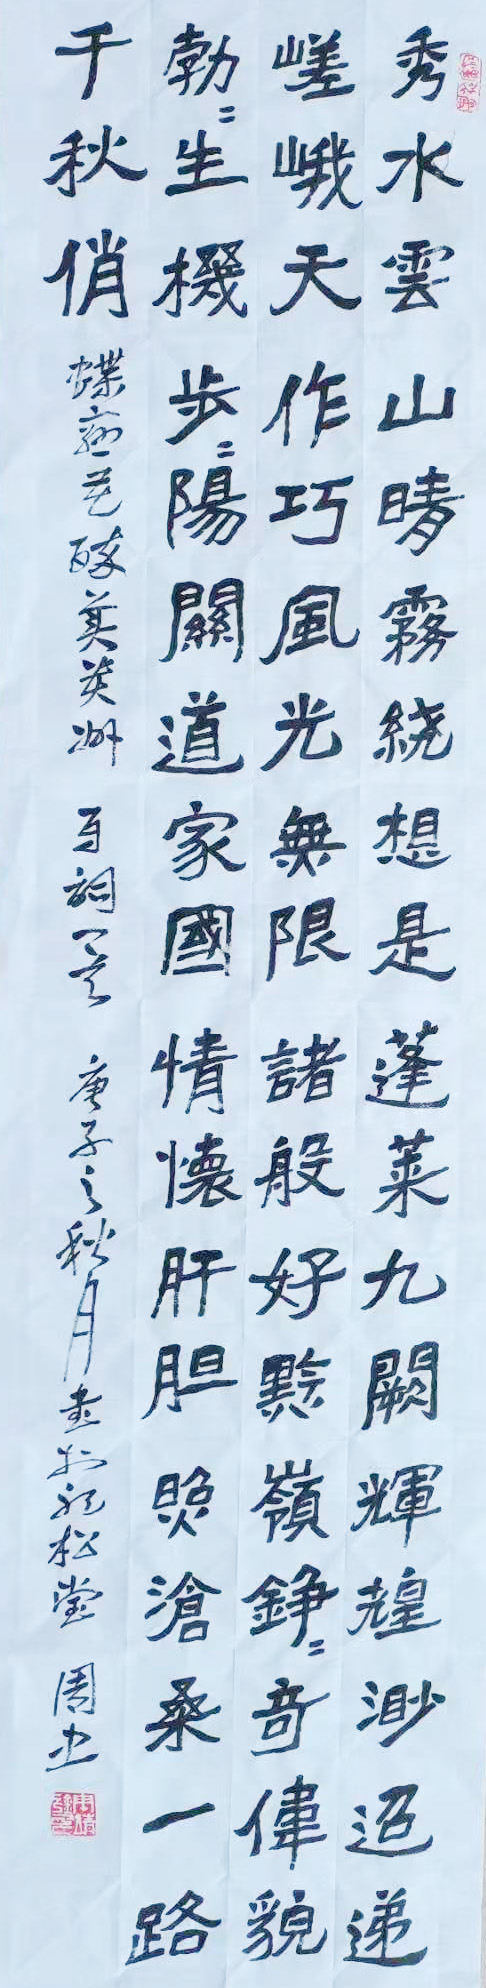 秀水雲山晴霧繞想是蓬萊九闕輝煌渺迢递
嵯峨天作巧風光無限諸般好黟嶺錚〻奇偉貌
勃〻生機步〻陽關道家國情懷肝胆照滄桑一路
千秋俏 蝶戀花 百詞一首 庚子之秋月書於 松堂 周